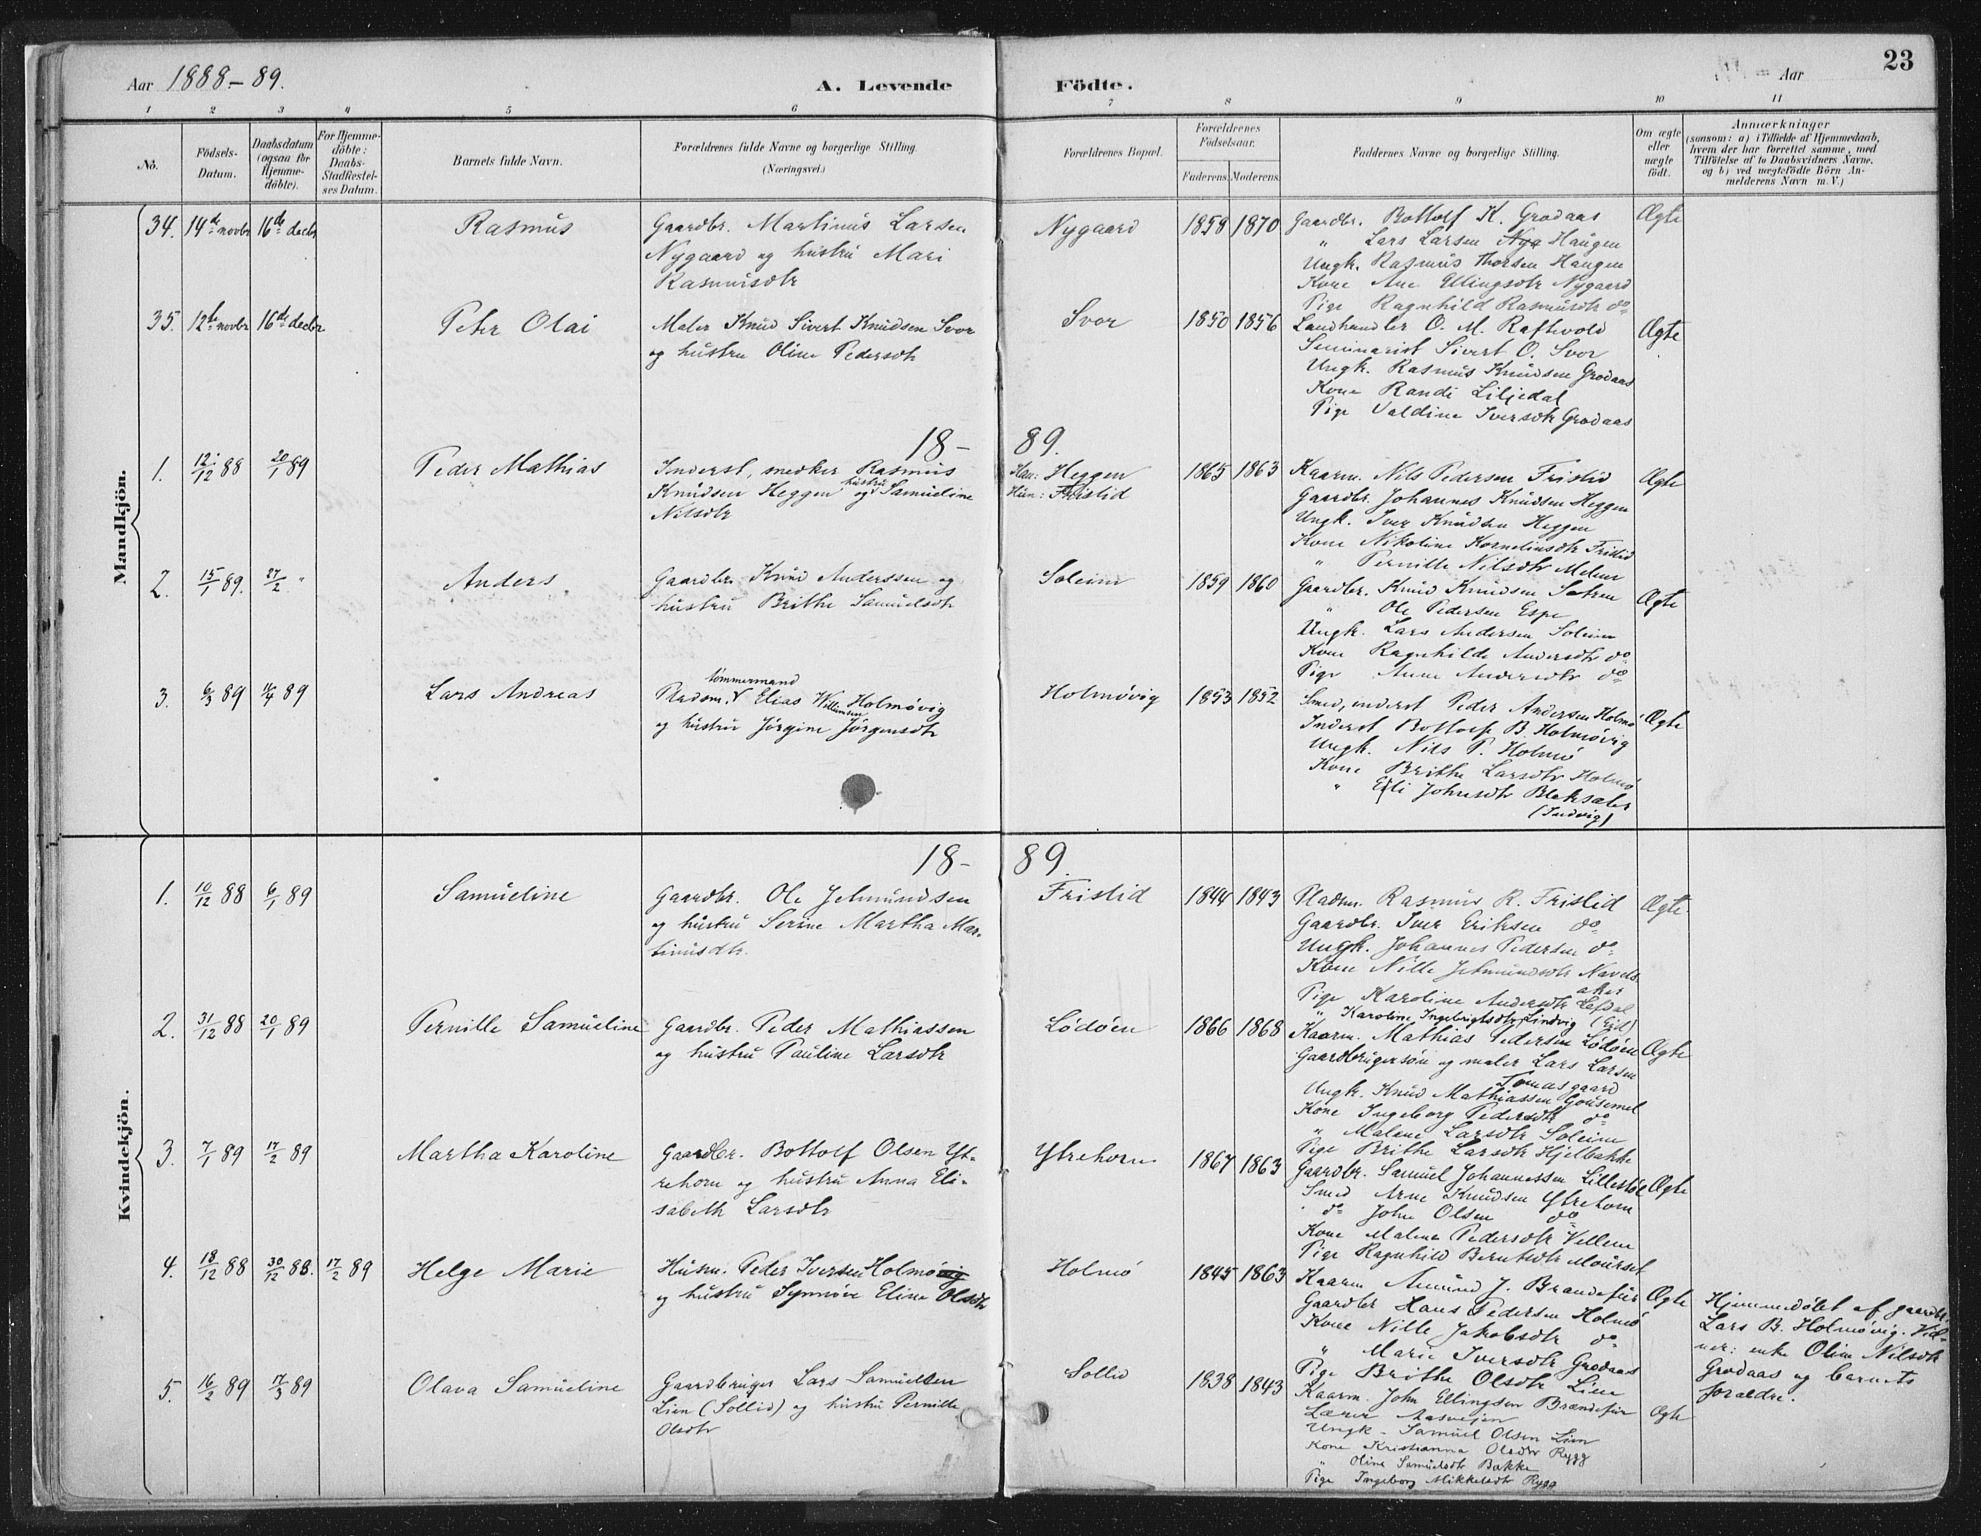 23
Aar 1888-89.
A. Levende Födte.
Aar
1 2 3 4 5 6 7 8 9 10 11
No.
Födsels-Datum.
Daabsdatum (ogsaa for Hjemme-döbte).
For Hjemme-döbte: Daabs-Stadfæstel-ses Datum.
Barnets fulde Navn.
Forældrenes fulde Navne og borgerlige Stilling.
(Næringsvei.)
Forældrenes Bopæl.
Forældrenes Födselsaar.
Faderens. Moderens.
Faddernes Navne og borgerlige Stilling.
Om ægte eller uægte födt.
Anmærkninger
(saasom: a) i Tilfælde af Hjemmedaab,
hvem der har forrettet samme, med
Tilföielse af to Daabsvidners Navne,
og b) ved uægtefödte Börn An-
melderens Navn m. V.)
Mandkjön.
34. 14de novbr 16de decbr Rasmus
Gaardbr. Martinus Larsen
Nygaard og hustru Mari
Rasmusdtr
Nygaard 1858 1870
Gaardbr. Bottolf K. Grodaas
" Lars Larsen Haugen
Ungk. Rasmus Thorsen Haugen
Kone Ane Ellingsdtr Nygaard
Pige Ragnhild Rasmusdtr do
Ægte
35. 12te novbr 16de decbr Pehr Olai
Maler Knud Sivert Knudsen Svor
og hustru Oline Pedersdtr
Svor 1850 1856
Landhandler O. M. Raftevold
Seminarist Sivert O. Svor
Ungk. Rasmus Knudsen Grodaas
Kone Randi Liljedal
Pige Valdine Iversdtr Grodaas
Ægte
18- 89.
1. 12/12 88 20/1 89 Peder Mathias
Inderst, snedker Rasmus
Knudsen Heggen og hustru Samueline
Nilsdtr
Han: Heggen
Hun: Fristid
1865 1863
Kaarm. Nils Pedersen Fristid
Gaardbr. Johannes Knudsen Heggen
Ungk. Iver Knudsen Heggen
Kone Nikoline Korneliusdtr Fristid
" Pernille Nilsdtr Melen
Ægte
2. 15/1 89. 27/2 " Anders
Gaardbr. Knud Anderssen og
hustru Brithe Samuelsdtr
Soleim 1859 1860
Gaardbr. Knud Knudsen Sætren
" Ole Pedersen Espe
Ungk. Lars Andersen Soleim
Kone Ragnhilde Andersdtr do
Pige Anne Andersdtr do
Ægte
3. 6/3 89 89 Lars Andreas
tømmermand
Elias Willumsen Holmøvig
og hustru Jörgine Jörgensdtr
Holmøvig 1853 1852
Smed, inderst Peder Andersen Holmö
Inderst Bottolf B. Holmøvig
Ungk. Nils P. Holmö
Kone Brithe Larsdtr Holmö
" Eli Johnsdtr Bleksæter
(Indvig)
Ægte
18- 89.
Kvindekjön.
1. 10/12 88 6/1 89 Samueline
Gaardbr. Ole Jetmundsen
og hustru Serine Martha Mar-
tinusdtr.
Fristid 1844 1843
Pladsm. Rasmus R. Fristid
Gaardbr. Iver Eriksen do
Ungk. Johannes Pedersen do
Kone Nille Jetmundsdtr Navels-
aker
Pige Karoline Andersdtr Lefdal
" Karoline Ingebrigtsdtr Lindvig (Eid)
Ægte.
2. 31/12 88 20/1 89 Pernille Samueline
Gaardbr. Peder Mathiassen
og hustru Pauline Larsdtr
Lödöen 1866 1868
Kaarm. Mathias Pedersen Lödöen
Gaardbrugersön og maler Lars Larsen
Tomasgaard
Ungk. Knud Mathiassen Gousemel
Kone Ingeborg Pedersdtr do
" Malene Larsdtr Soleim
Pige Brithe Larsdtr Hjelbakke
Ægte
3. 7/1 89 17/2 89 Martha Karoline
Gaardbr. Bottolf Olsen Yt-
rehorn og hustru Anna Eli-
sabeth Larsdtr
Ytrehorn 1867 1863
Gaardbr. Samuel Johannessen Lillestöl
Smed Arne Knudsen Ytrehorn
do John Olsen do
Kone Malene Pedersdtr Vellem
Pige Ragnhild Berntsdtr Mourset
Ægte
4. 18/12 88 30/12 88. 17/2 89 Helge Marie
Husm. Peder Iversen Holmö
og hustru Synnöve Eline Olsdtr
Holmö 1845 1863
Kaarm Amund J. Brandefur
Gaardbr Hans Pedersen Holmö
Kone Nille Jakobsdtr do
" Marie Iversdtr Grodaas
Pige Brithe Olsdtr Lien
Ægte
Hjemmedöbt af gaardbr.
Lars B. Holmøvig. Vid-
ner: enke Oline Nilsdtr
Grodaas og barnets
forældre.
5. 16/2 89 17/3 89 Olava Samueline
Gaardbruger Lars Samuelsen
Lien (Sollid) og hustru Pernille
Olsdtr
Sollid 1838 1843
Kaarm. John Ellingsen Brandefur
Lærer Aasvejen
Ungk. Samuel Olsen Lien
Kone Kristianna Olsdtr Rygg
" Oline Samuelsdtr Bakke
Pige Ingeborg Mikkelsdtr Rygg
Ægte